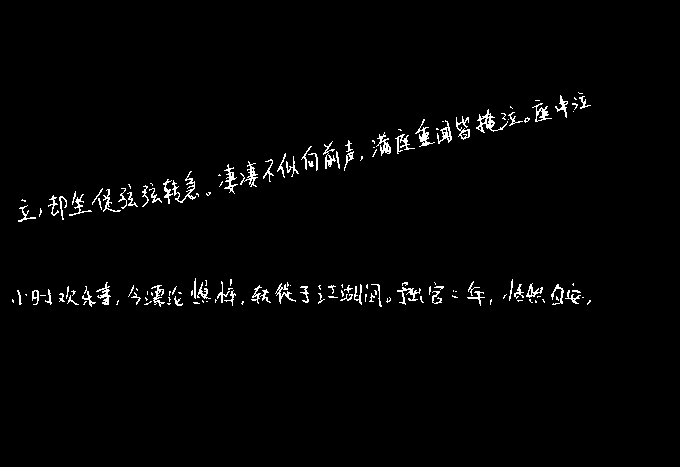 立，却坐促弦弦转急。凄凄不似向前声，满座重闻皆掩泣。座中泣
小时欢乐事，今漂沦憔悴，转徙于江湖间。予出官二年，恬然自安，